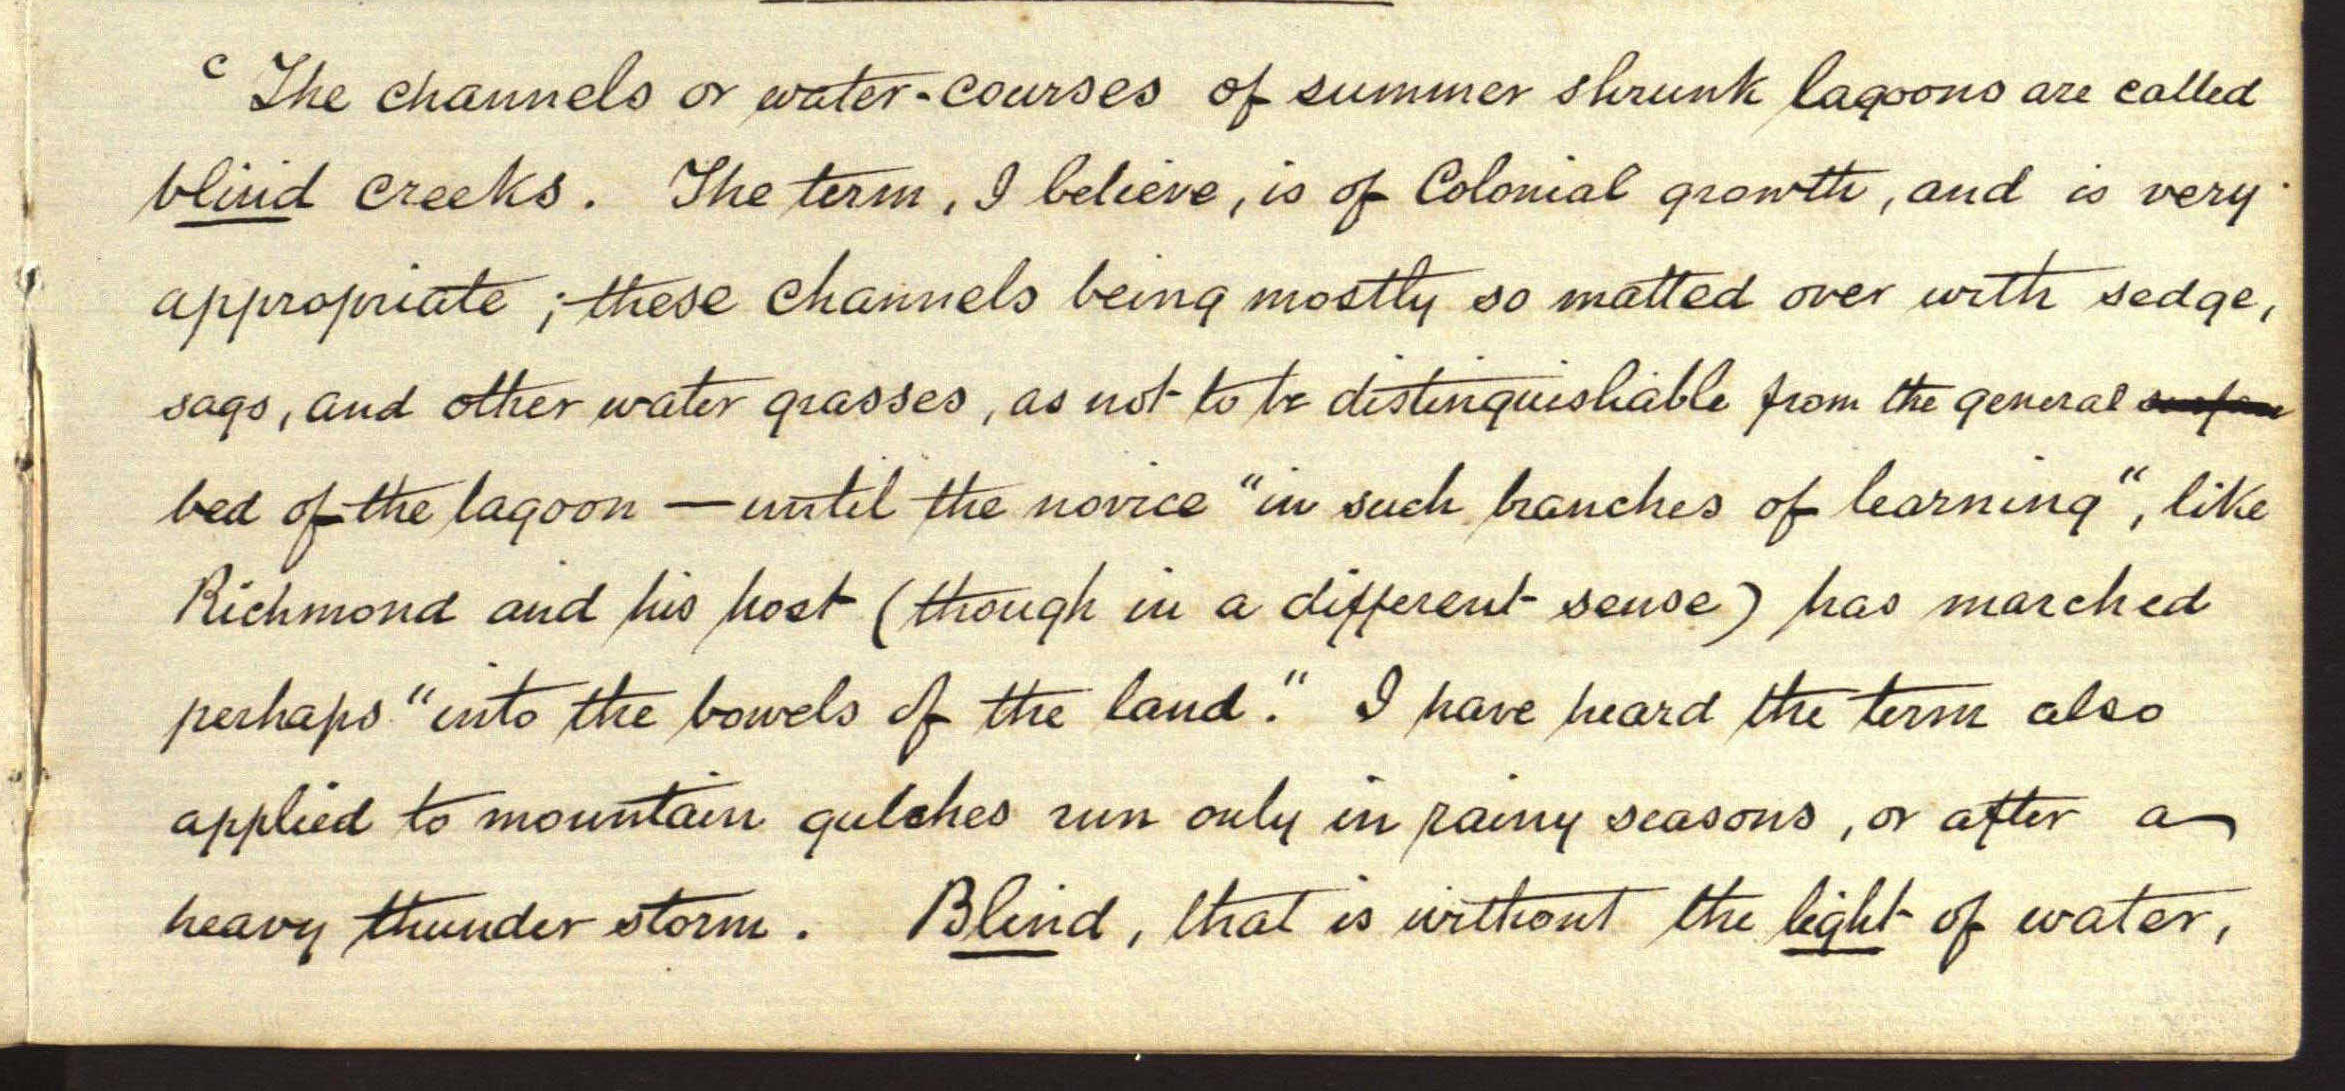 c The channels or water-courses of summer shrunk lagoons are called
blind creeks. The term, I believe, is of Colonial growth, and is very
appropriate; these channels being mostly so matted over with sedge,
sags, and other water grasses, as not to be distinguishable from the general
bed of the lagoon — until the novice "in such branches of learning", like
Richmond and his host (though in a different sense) has marched
perhaps "into the bowels of the land." I have heard the term also
applied to mountain gulches run only in rainy seasons, or after a
heavy thunder storm. Blind, that is without the light of water,